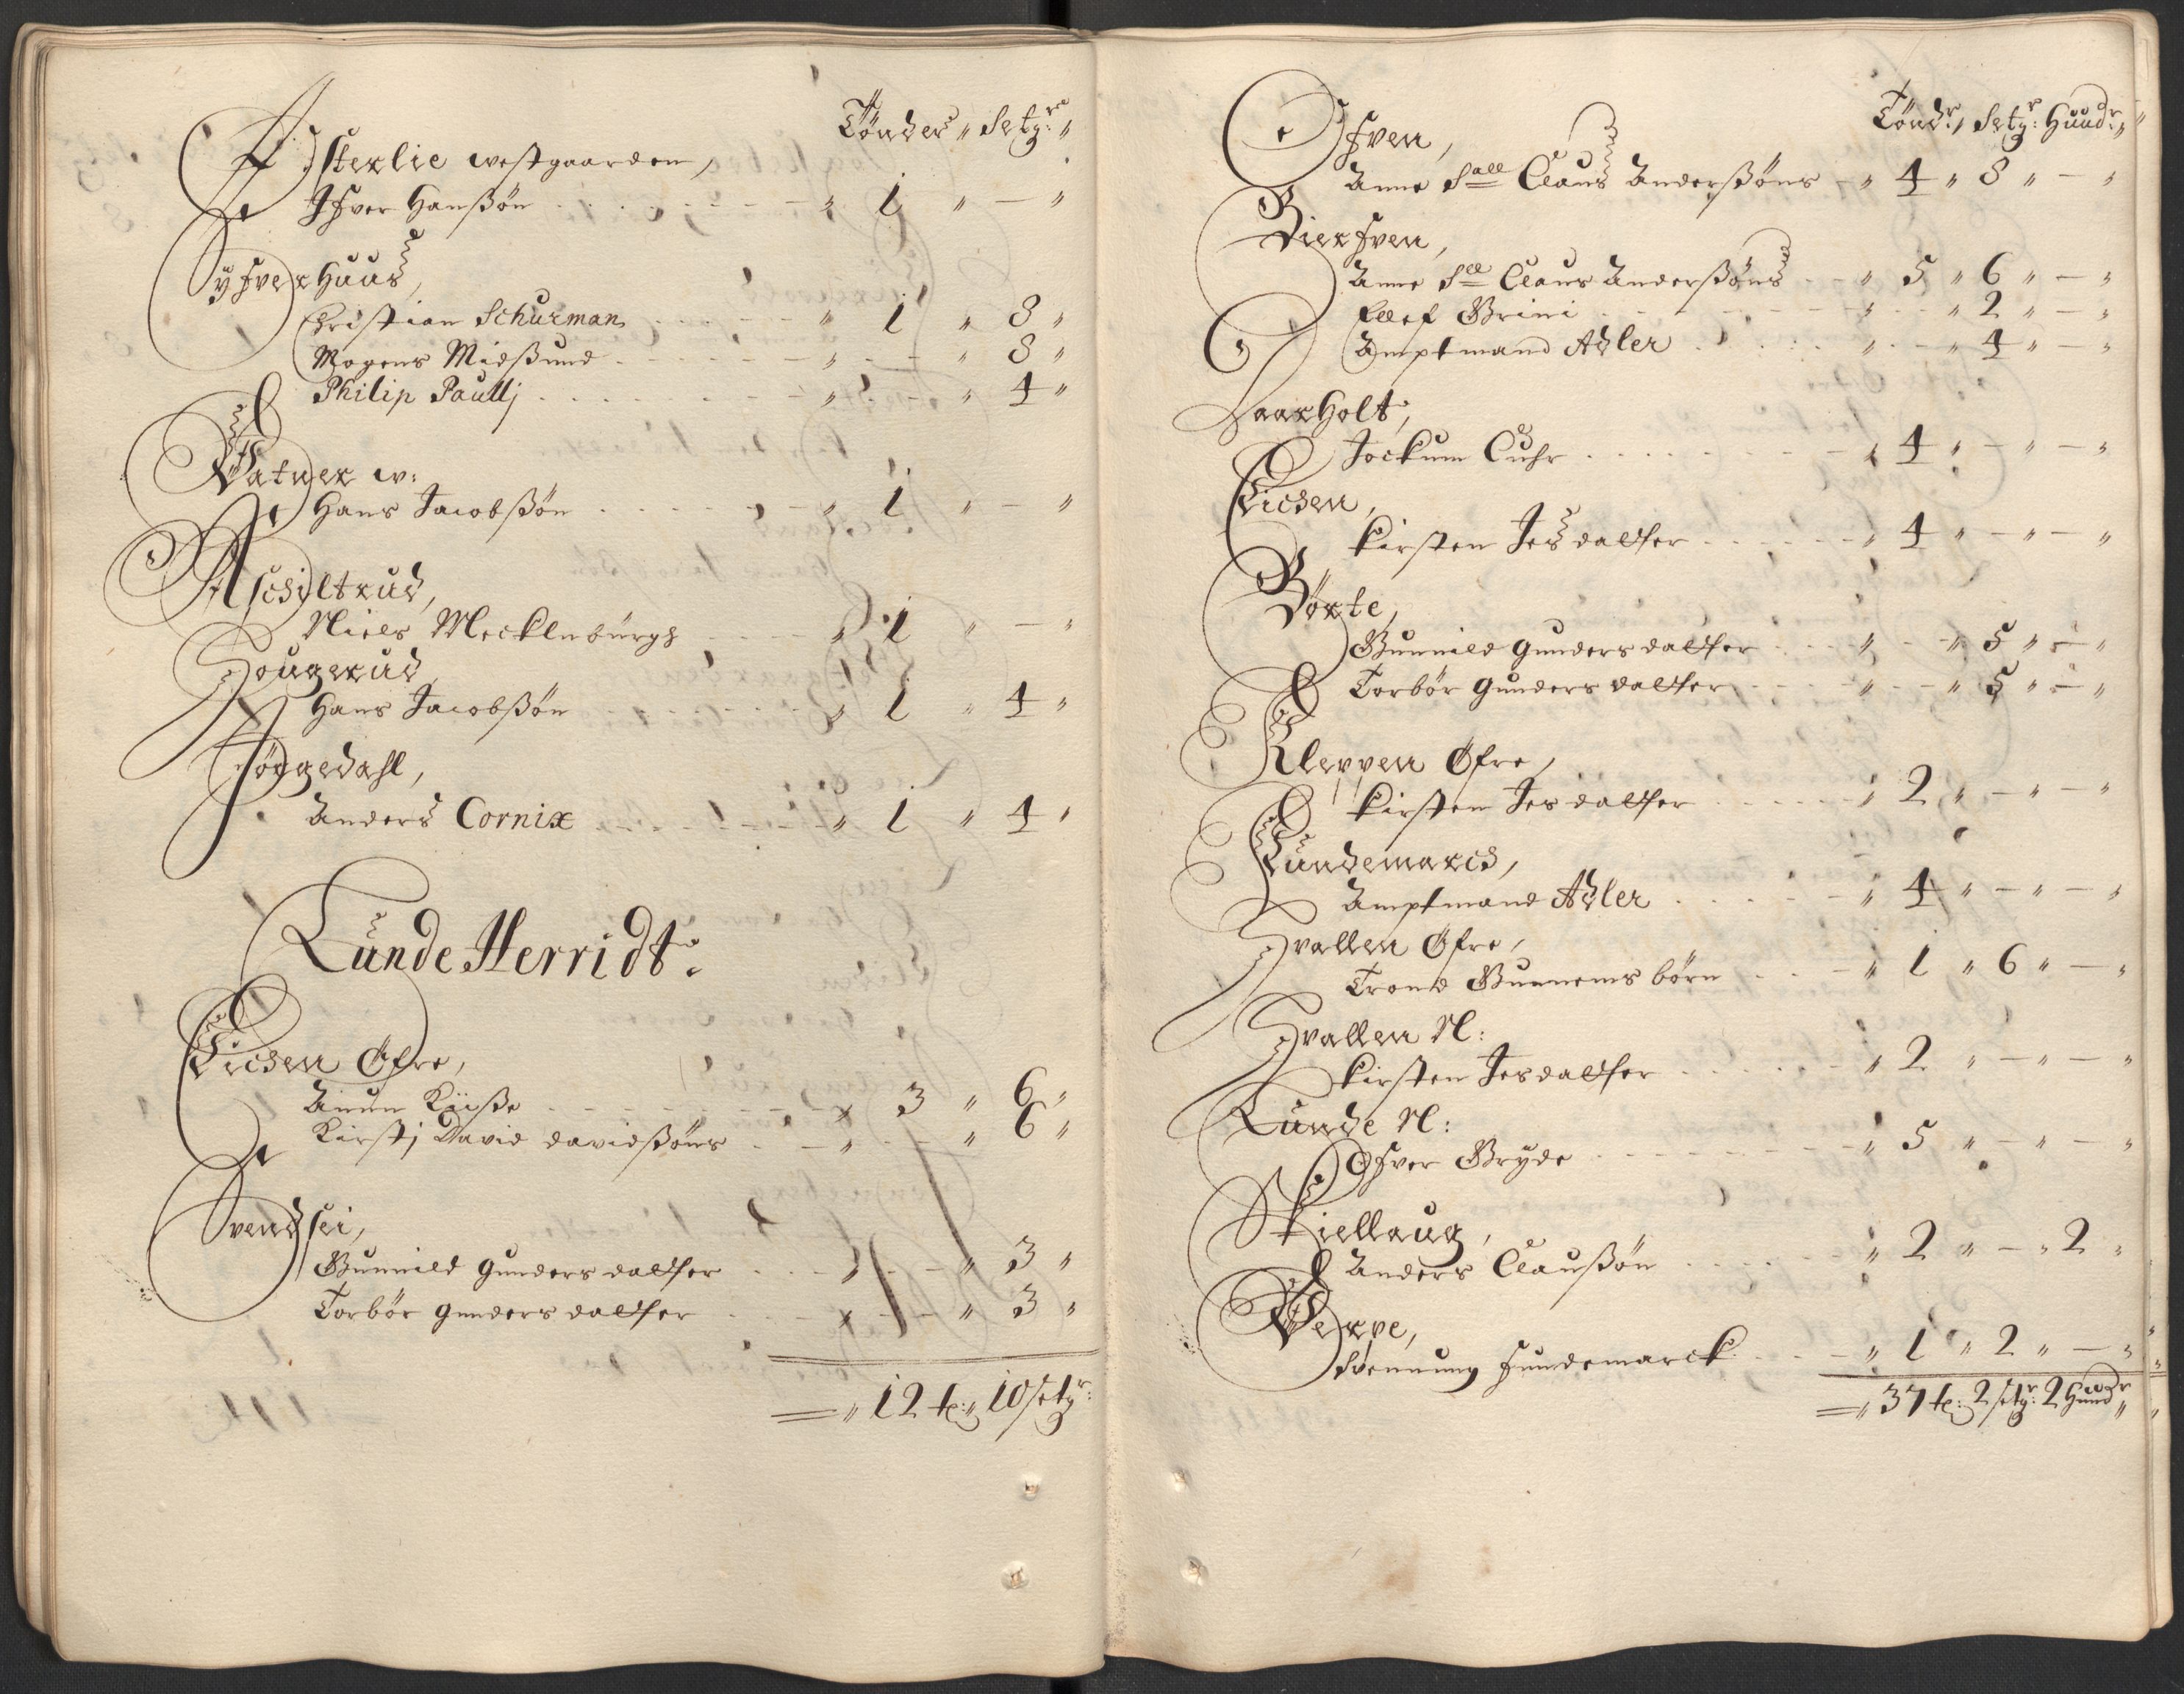 Tønder „ Setg:r „
Østerlie westgaarden,
Ifver Hanßøn . . . „ 1 „ — „
Syfverhuus,
Christian Schurman . . . „ 1 „ 8 „
Mogens Midßund . . . „ - „ 8 „
Philip Paullj . . . „ - „ 4 „
Watner w:
Hans Jacobßøn . . . „ 1 „ — „
Aschiltrud,
Niels Mecklnburgs . . . „ 1 „ — „
Hougerud,
Hans Jacobßøn . . . „ 1 „ 4 „
Jøggedahl,
Anders Cornix . . . „ 1 „ 4 „
Lunde Herridt:
Eichen Øfre,
Kiiße . . . „ 3 „ 6 „
Kirstj David davidßøns . . . „ - „ 6 „
Svendsei,
Gunnild Gunders datter . . . „ - „ 3 „
Torbør Gunders datter . . . „ - „ 3 „
= „ 12 t: „ 10 setgr:
Tøndr, Setgr: Hundr: „
Ofven,
Anne Sall Claus Anderßøns - „ 4 „ 8 „ — „
Bierfven,
Anne Sll Claus Anderßøns - - „ 5 „ 6 „ — „
Ellef Grini . . . „ - „ 2 „ — „
Amptmand Adler . . . „ - „ 4 „ — „
Haarholt,
Jockum Cuhr . . . „ 4 „ — „ — „
Eichen,
Kirsten Jes datter . . . „ 4 „ — „ — „
Børte,
Gunnild Gunders datter . . . „ - „ 5 „ — „
Torbør Gunders datter . . . „ - „ 5 „ — „
Kleppen Øfre,
Kirsten Jes datter . . . „ 2 „ — „ — „
Lundemarch,
Amptmand Adler . . . „ 4 „ — „ — „
Hvallen Øfre,
Trond Gunnems børn . . . „ 1 „ 6 „ — „
Hvallen N:
Kirsten Jesdatter . . . „ 2 „ — „ — „
Lunde N:
Ofver Bryde . . . „ 5 „ — „ — „
Kiellaug,
Anders Claußøn . . . „ 2 „ — „ 2 „
Werpe,
Svennung Lundemarck . . . „ 1 „ 2 „ — „
= „ 37 t: 2 setgr: 2 Hundr „